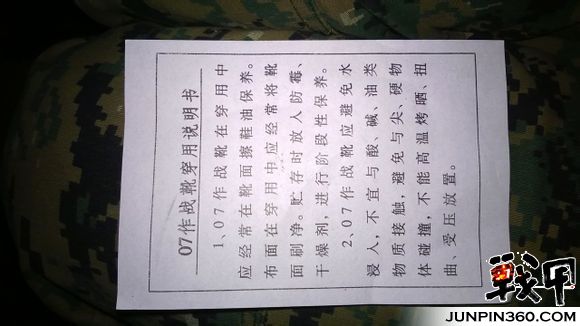 07作战靴穿用说明书
1、07作战靴在穿用中
应经常在靴面擦鞋油保养。
布面在穿用中应经常将靴
面刷净。贮存时放入防霉、
干燥剂，进行阶段性保养。
2、07作战靴应避免水
浸入，不宜与酸、碱、油类
物质接触，避免与尖、硬物
体碰撞，不能高温烤晒、扭
曲、受压放置。
战甲
JUNPIN360.COM